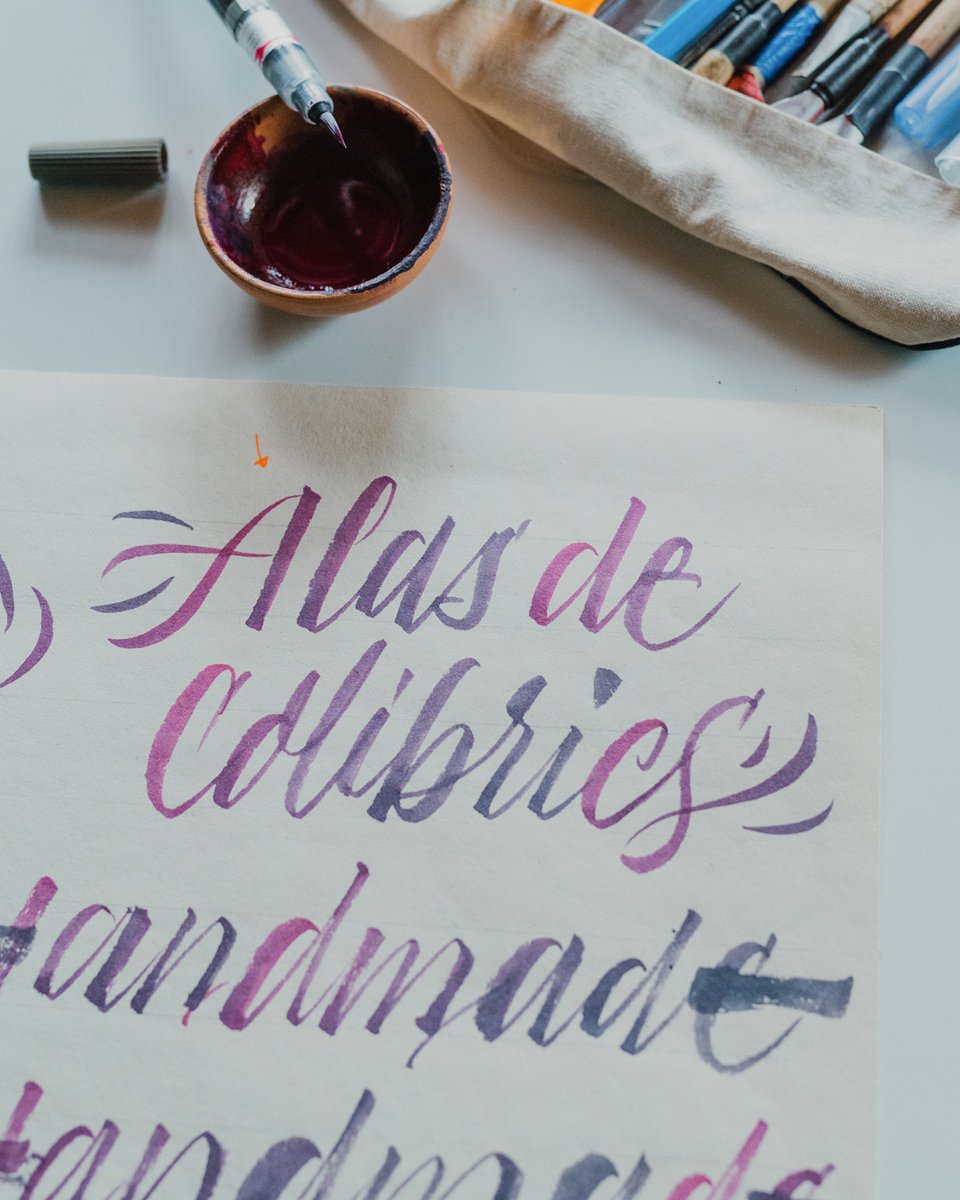 Alas de
colibríes
Handmade
Handmade